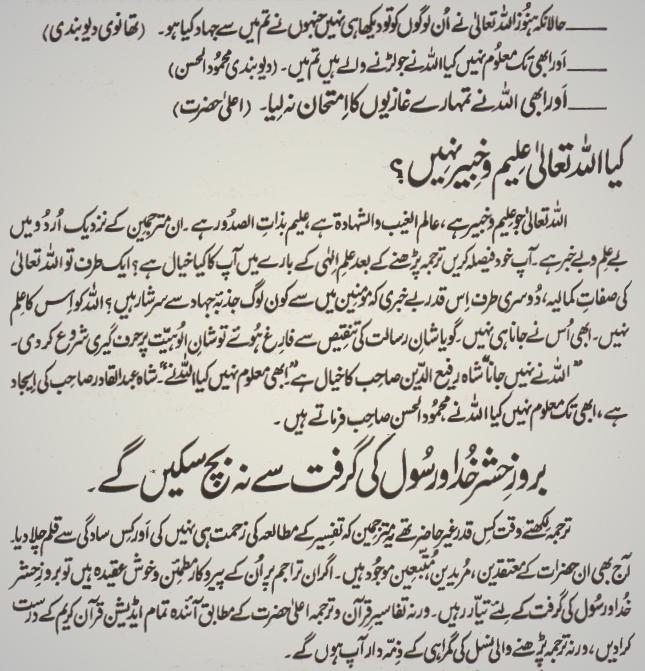 ____ حالانکہ ہنوز اللہ تعالیٰ نے اُن لوگوں کو تو دیکھا ہی نہیں جنہوں نے تم میں سے جہاد کیا ہو۔ (تھانوی دیوبندی)
____ اور ابھی تک معلوم نہیں کیا اللہ نے جو لڑنے والے ہیں تم میں۔ (دیوبندی محمود الحسن)
____ اور ابھی اللہ نے تمہارے غازیوں کا امتحان نہ لیا۔ (اعلیٰ حضرت)
کیا اللہ تعالیٰ علیم و خبیر نہیں؟
اللہ تعالیٰ جو علیم و خبیر ہے، عالم الغیب والشہادۃ ہے، علیم بذات الصدور ہے۔ ان مترجمین کے نزدیک اُردو میں
بے علم و بے خبر ہے۔ آپ خود فیصلہ کریں ترجمہ پڑھنے کے بعد علم الٰہی کے بارے میں آپ کا کیا خیال ہے؟ ایک طرف تو اللہ تعالیٰ
کی صفاتِ کمالیہ، دُوسری طرف اِس قدر بے خبری کہ مؤمنین میں سے کون لوگ جذبۂ جہاد سے سرشار ہیں؟ اللہ کو اِس کا علم
نہیں۔ ابھی اُس نے جانا ہی نہیں۔ گویا شانِ رسالت کی تنقیص سے فارغ ہُوئے تو شانِ اُلوہیّت پر حرف گیری شروع کر دی۔
”اللہ نے نہیں جانا“ شاہ رفیع الدّین صاحب کا خیال ہے ”ابھی معلوم نہیں کیا اللہ نے“۔ شاہ عبدالقادر صاحب کی ایجاد
ہے، ابھی تک معلوم نہیں کیا اللہ نے محمُود الحسن صاحب فرماتے ہیں۔
بروزِ حشر خُدا و رسُول کی گرفت سے نہ بچ سکیں گے۔
ترجمہ لکھتے وقت کس قدر غیر حاضر تھے یہ مترجمین کہ تفسیر کے مطالعہ کی زحمت ہی نہیں کی اور کس سادگی سے قلم چلا دیا۔
آج بھی ان حضرات کے معتقدین، مُریدین مُتّبعین موجود ہیں۔ اگر ان تراجم پر اُن کے پیروکار مطمئن و خوش عقیدہ ہیں تو بروزِ حشر
خُدا و رسُول کی گرفت کے لئے تیار رہیں۔ ورنہ تفاسیر قرآن و ترجمہ اعلیٰ حضرت کے مطابق آئندہ تمام ایڈیشن قرآن کریم کے درست
کرا دیں، ورنہ ترجمہ پڑھنے والی نسل کی گمراہی کے ذِمّہ دار آپ ہوں گے۔